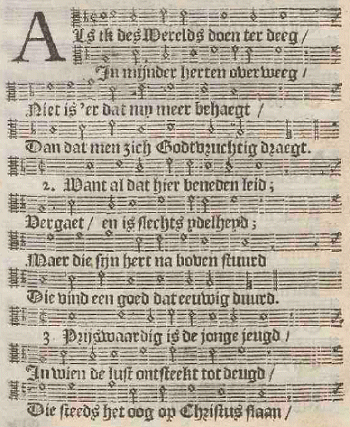 ALs ik des Werelds doen ter deeg /
In mijnder herten overweeg /
Niet is 'er dat my meer behaegt /
Dan dat men zich Godtvruchtig draegt.
2. Want al dat hier beneden leid;
Vergaet / en is slechts ydelheyd;
Maer die sijn hert na boven stuurd
Die vind een goed dat eeuwig duurd.
3. Prijswaardig is de jonge jeugd /
In wien de lust ontsteekt tot deugd /
Die steeds het oog op Christus slaan /